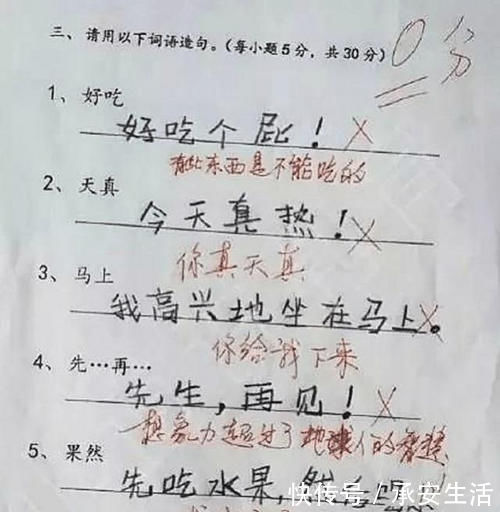 三、请用以下词语造句。(每小题5分，共30分)
0分
1、好吃
好吃个屁！
有些东西是不能吃的
2、天真
今天真热！
你真天真
3、马上
我高兴地坐在马上。
你给我下来
4、先…再…
先生，再见！
想象力超过了地球人的智慧
5、果然
先吃水果，然
快传号／承安生活